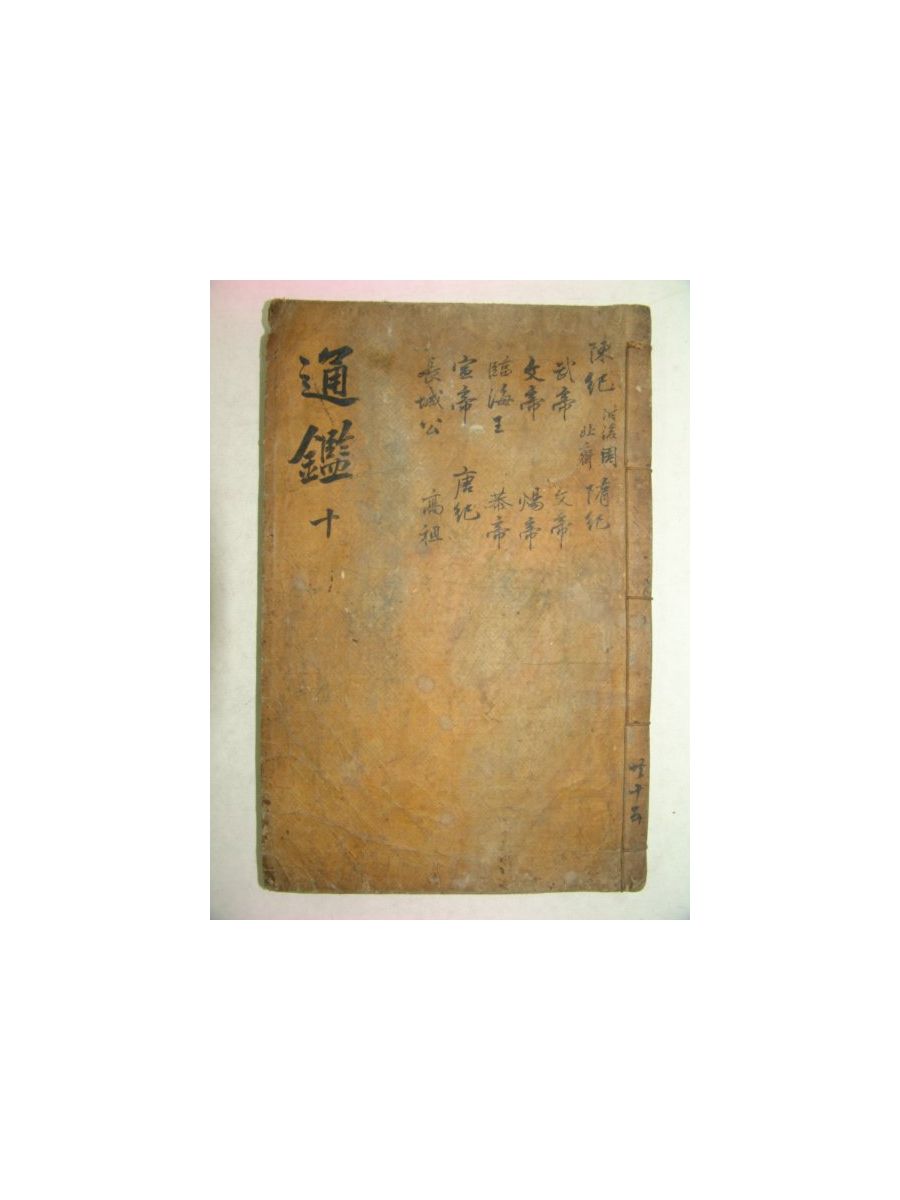 共十五
陳紀 附後周 北齊 隋紀
武帝 文帝
文帝 煬帝
臨海王 恭帝
宣帝 唐紀
長城公 高祖
通鑑 十